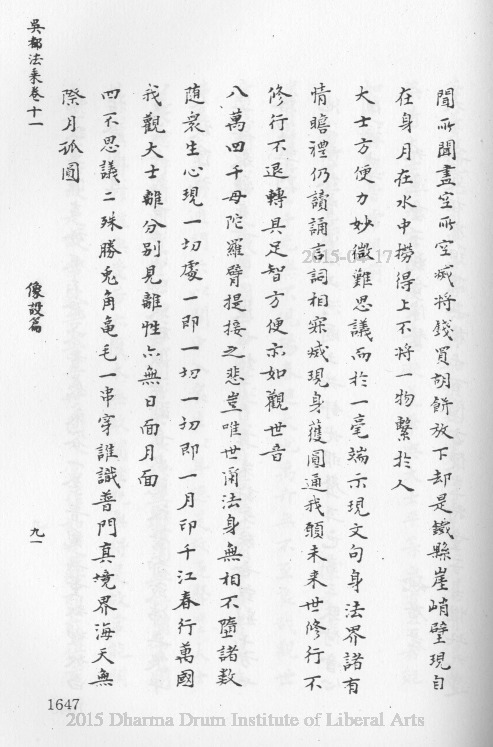 聞所聞盡空所空滅將錢買胡餅放下却是鐵懸崖峭壁現自
在身月在水中撈得上不將一物繫於人
大士方便力妙微難思議而於一毫端示現文句身法界諸有
情瞻禮仍讀誦言詞相寂滅現身獲圓通我願未来世修行不
修行不退轉具足智方便亦如觀世音
八萬四千母陀羅臂提接之悲豈唯世間法身無相不墮諸數
随衆生心現一切處一即一切一切即一月印千江春行萬國
我觀大士離分别見離性亦無日面月面
四不思議二殊勝兎角龜毛一串穿誰識普門真境界海天無
際月孤圓
吳都法乘卷十一
像設篇
九一
1647
2015-04-17
2015 Dharma Drum Institute of Liberal Arts